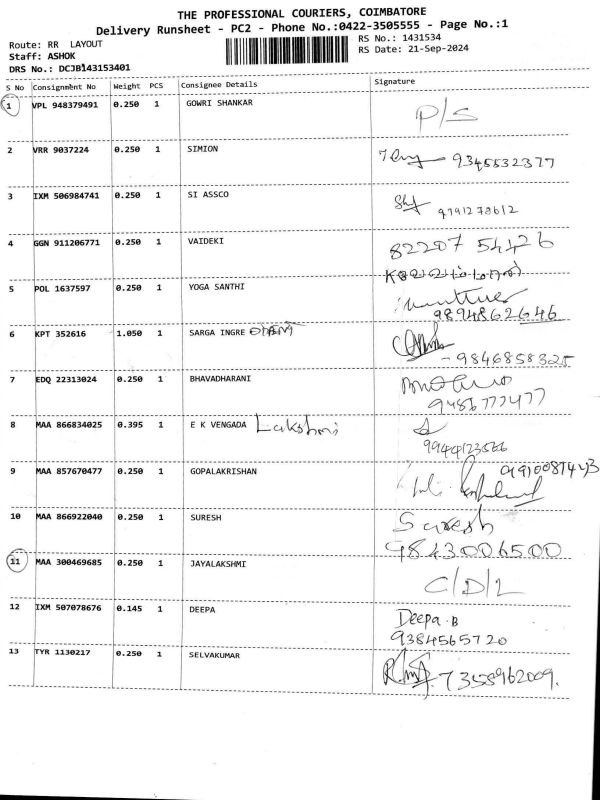 THE PROFESSIONAL COURIERS, COIMBATORE
Delivery Runsheet - PC2 - Phone No.:0422-3505555 - Page No.:1
Route: RR LAYOUT
RS No.: 1431534
Staff: ASHOK
RS Date: 21-Sep-2024
DRS No.: DCJB143153401
S No Consignment No Weight PCS Consignee Details Signature
1 VPL 948379491 0.250 1 GOWRI SHANKAR P/S
2 VRR 9037224 0.250 1 SIMION 9345532377
3 IXM 506984741 0.250 1 SI ASSCO 9791278612
4 GGN 911206771 0.250 1 VAIDEKI 82207 54426
5 POL 1637597 0.250 1 YOGA SANTHI
9894862646
6 KPT 352616 1.050 1 SARGA INGRE
- 9846858325
7 EDQ 22313024 0.250 1 BHAVADHARANI
9486777477
8 MAA 866834025 0.395 1 E K VENGADA Lakshmi
9944123566
9 MAA 857670477 0.250 1 GOPALAKRISHAN
10 MAA 866922040 0.250 1 SURESH Suresh
9843006500
11 MAA 300469685 0.250 1 JAYALAKSHMI C/D/L
12 IXM 507078676 0.145 1 DEEPA Deepa.B
9384565720
13 TYR 1130217 0.250 1 SELVAKUMAR 7358962009.